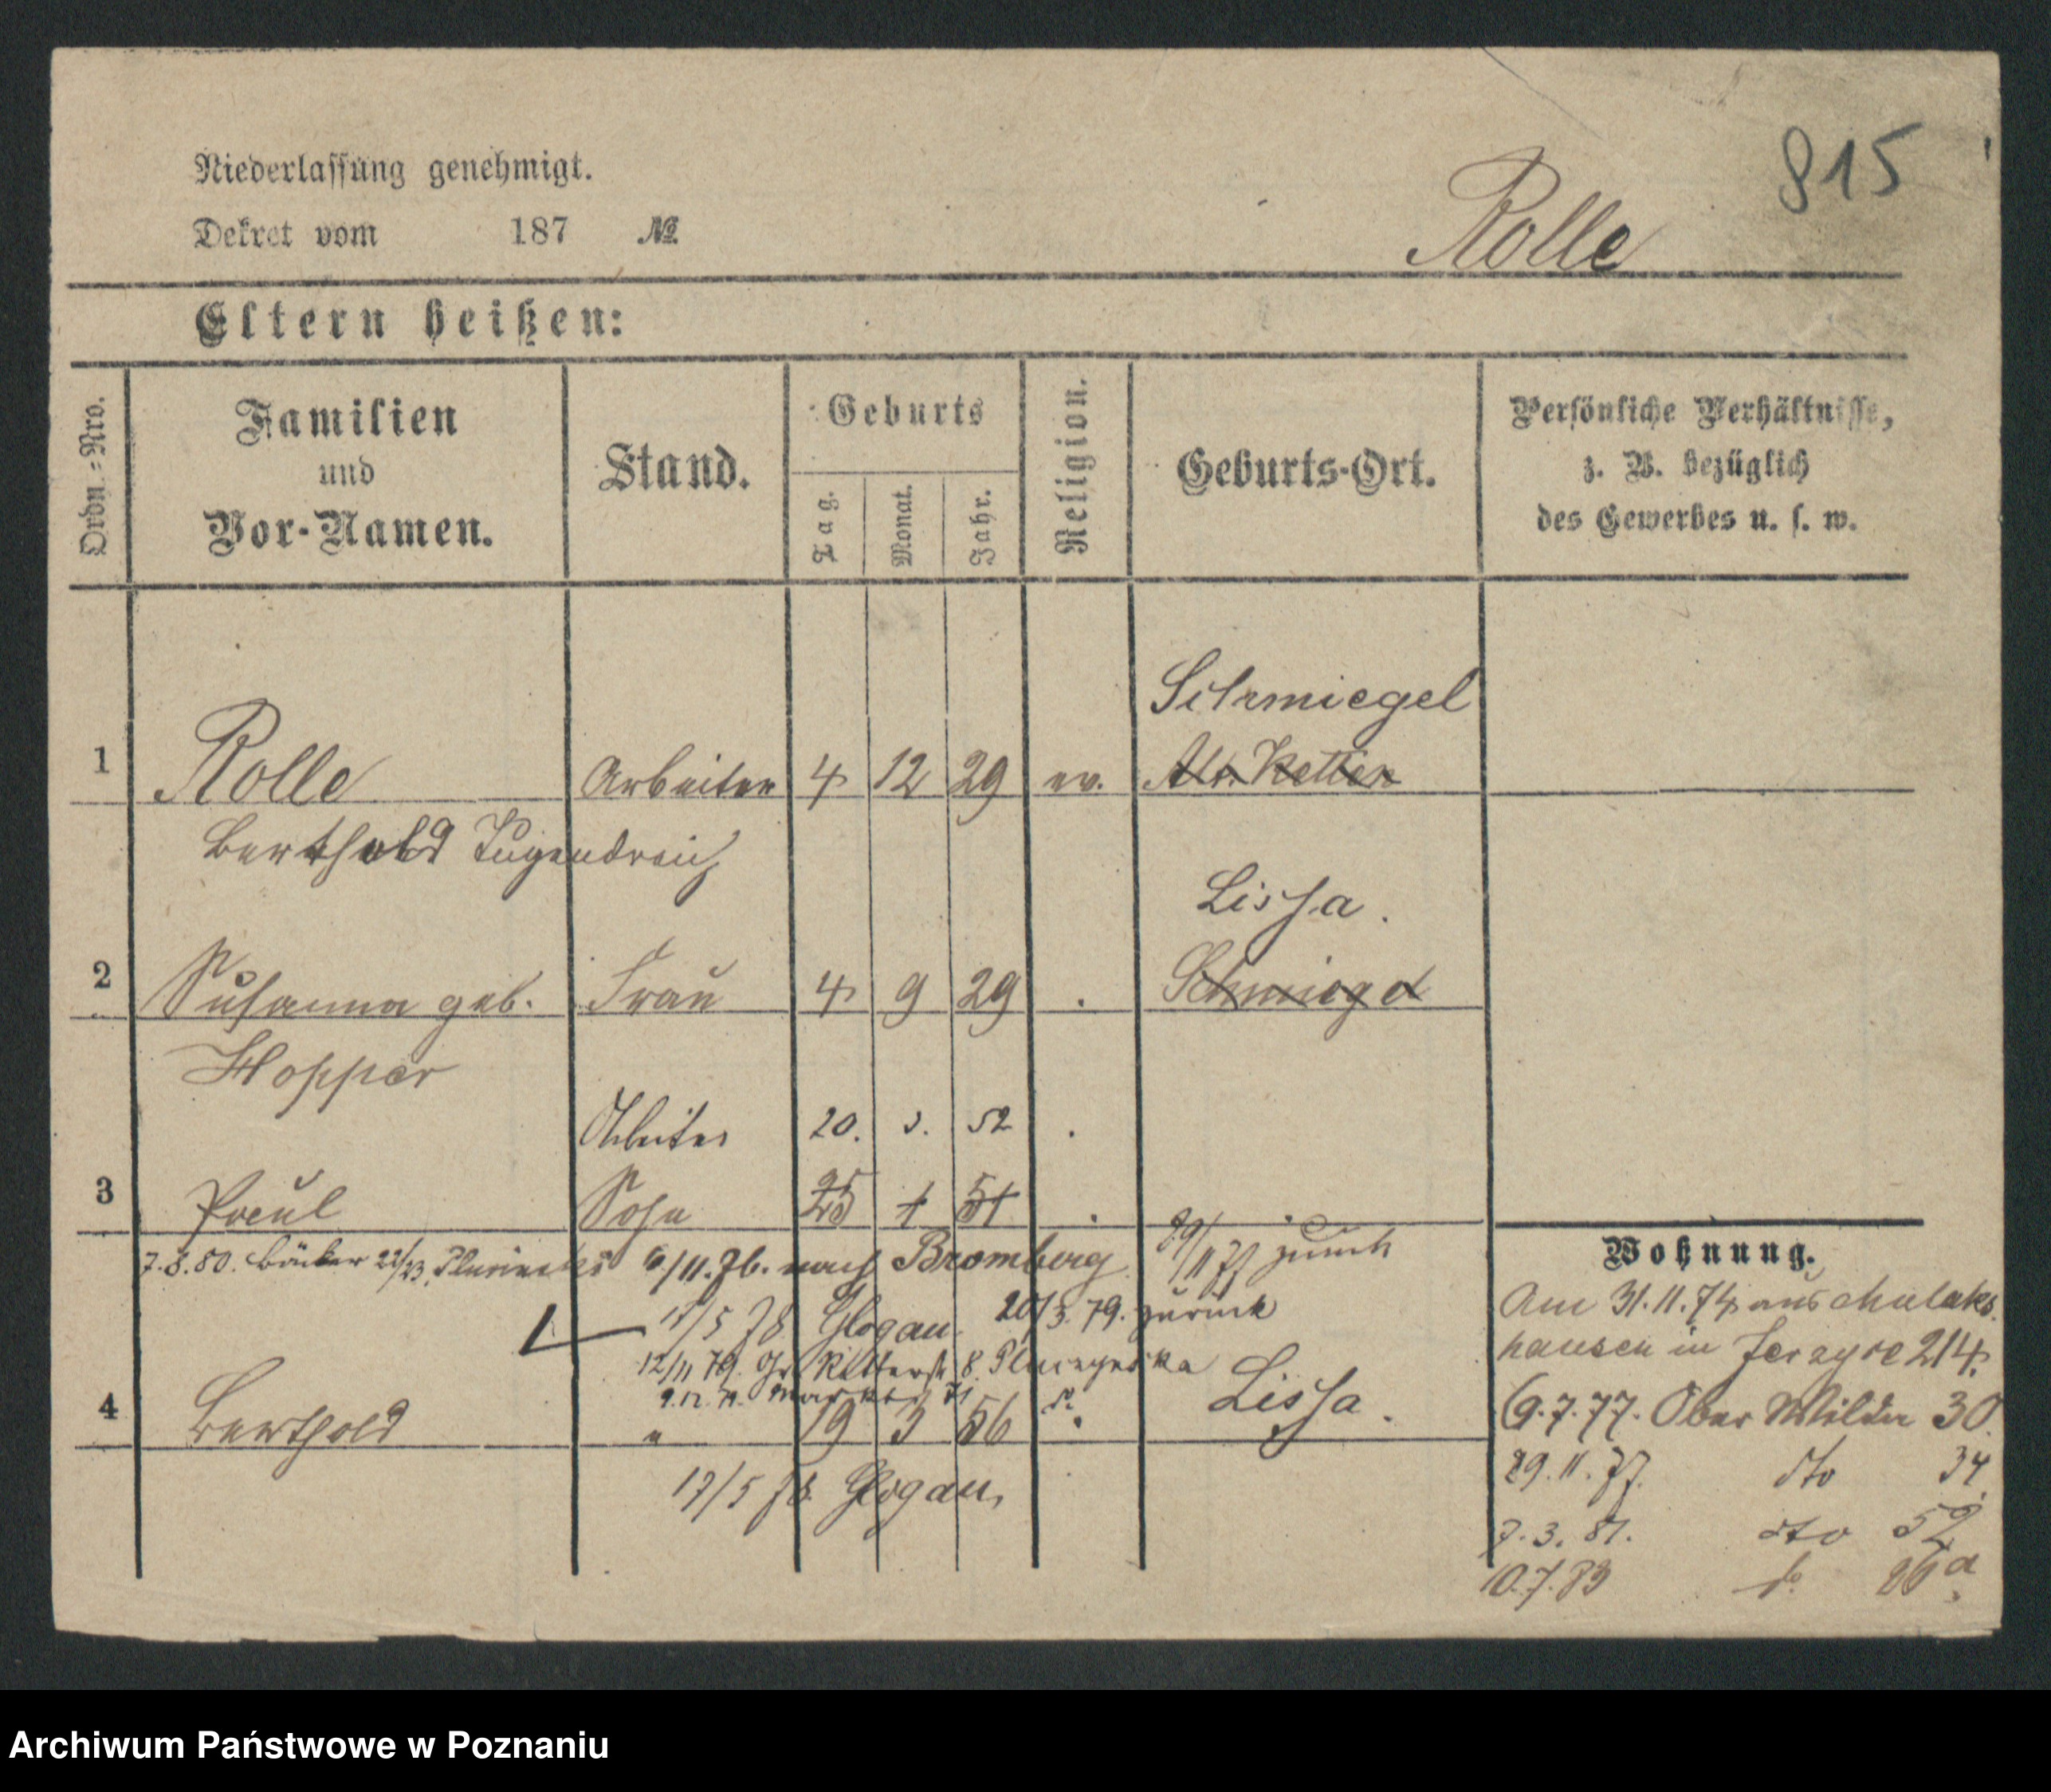 815
Niederlassung genehmigt.
Dekret vom 187 №
Rolle
Eltern heißen:
Ordn.-Nro.
Familien
und
Vor-Namen.
Stand.
Geburts
Tag.
Monat.
Jahr.
Religion.
Geburts-Ort.
Persönliche Verhältnisse,
z. B. bezüglich
des Gewerbes u. s. w.
Schmiegel
1 Rolle Arbeiter 4 12 29 ev.
Berthold Tugendreich
Lissa.
2 Susanna geb. Frau 4 9 29 . Schmiegel
Hopper
Arbeiter 20. 3. 52 .
3 Paul Sohn 25 1 51 .
7.8.80. Bäcker 22/23. 6/11. 76. nach Bromberg 29/11 77 zurück
17/5 78 Glogau 20/3. 79. zurück
12/11 79. Gr. Ritterstr 8.
9.12.79. Markt 71
4 Berthold " 19 3 56 . Lissa.
17/5 78. Glogau.
Wohnung.
Am 31.11.74 aus
hausen in Jerzyce 214.
6.7.77. Ober Wilda 30.
29.11.77. dto 34.
7.3.81. dto 52
10.7.83 do 26a
Archiwum Państwowe w Poznaniu